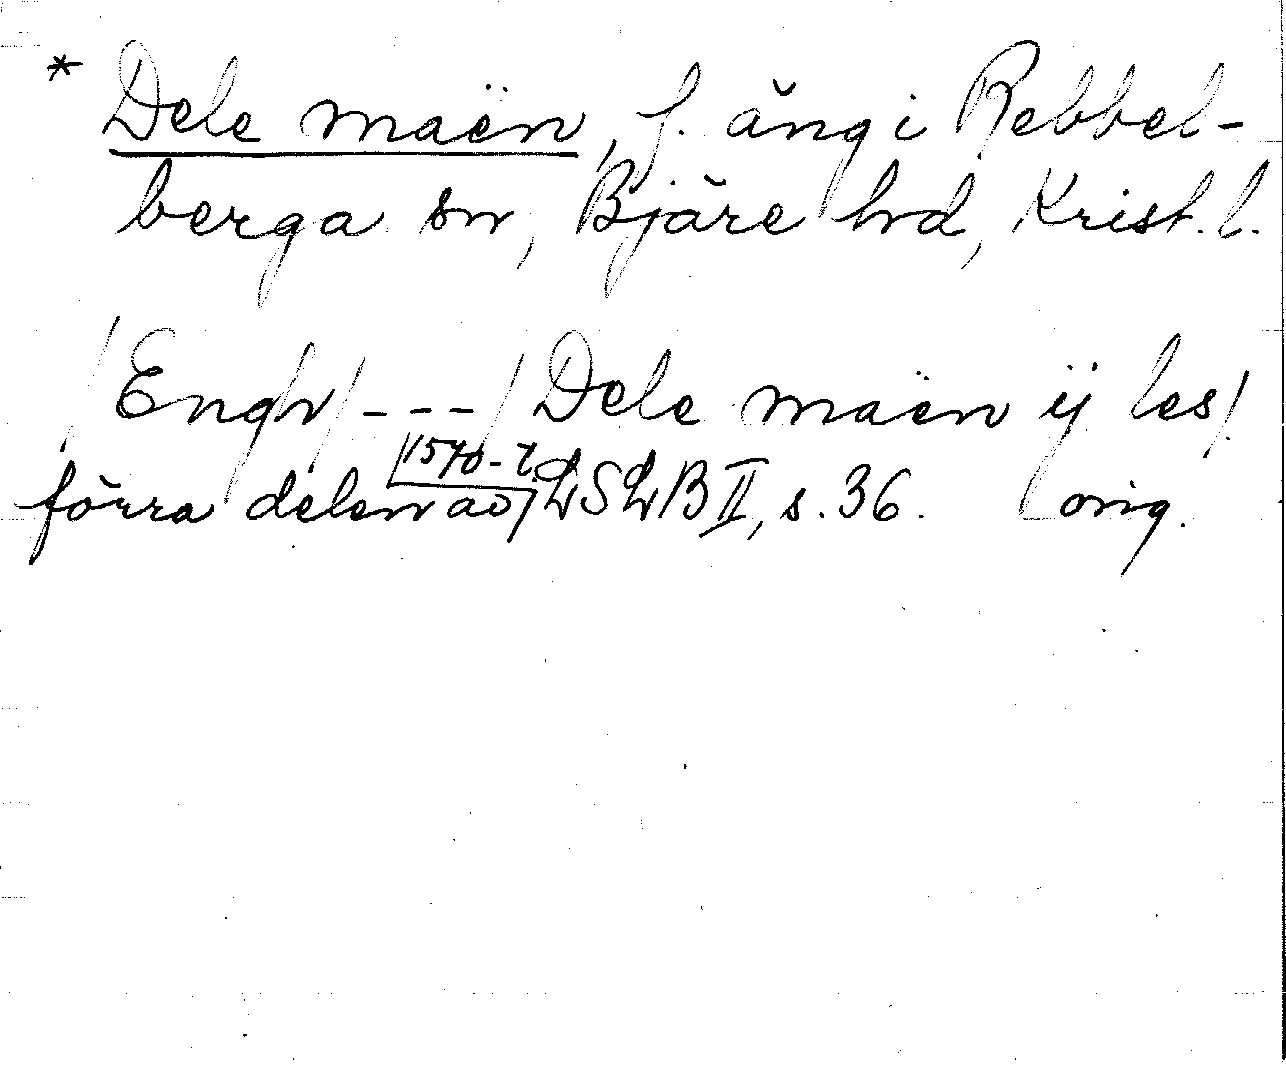 * Dele maën, f. äng i Rebbel-
berga sn, Bjäre hd, Krist. l.
/Engh/ - - - / Dele maën ij les/
förra delen av 1570-t. LSLB II, s. 36. orig.